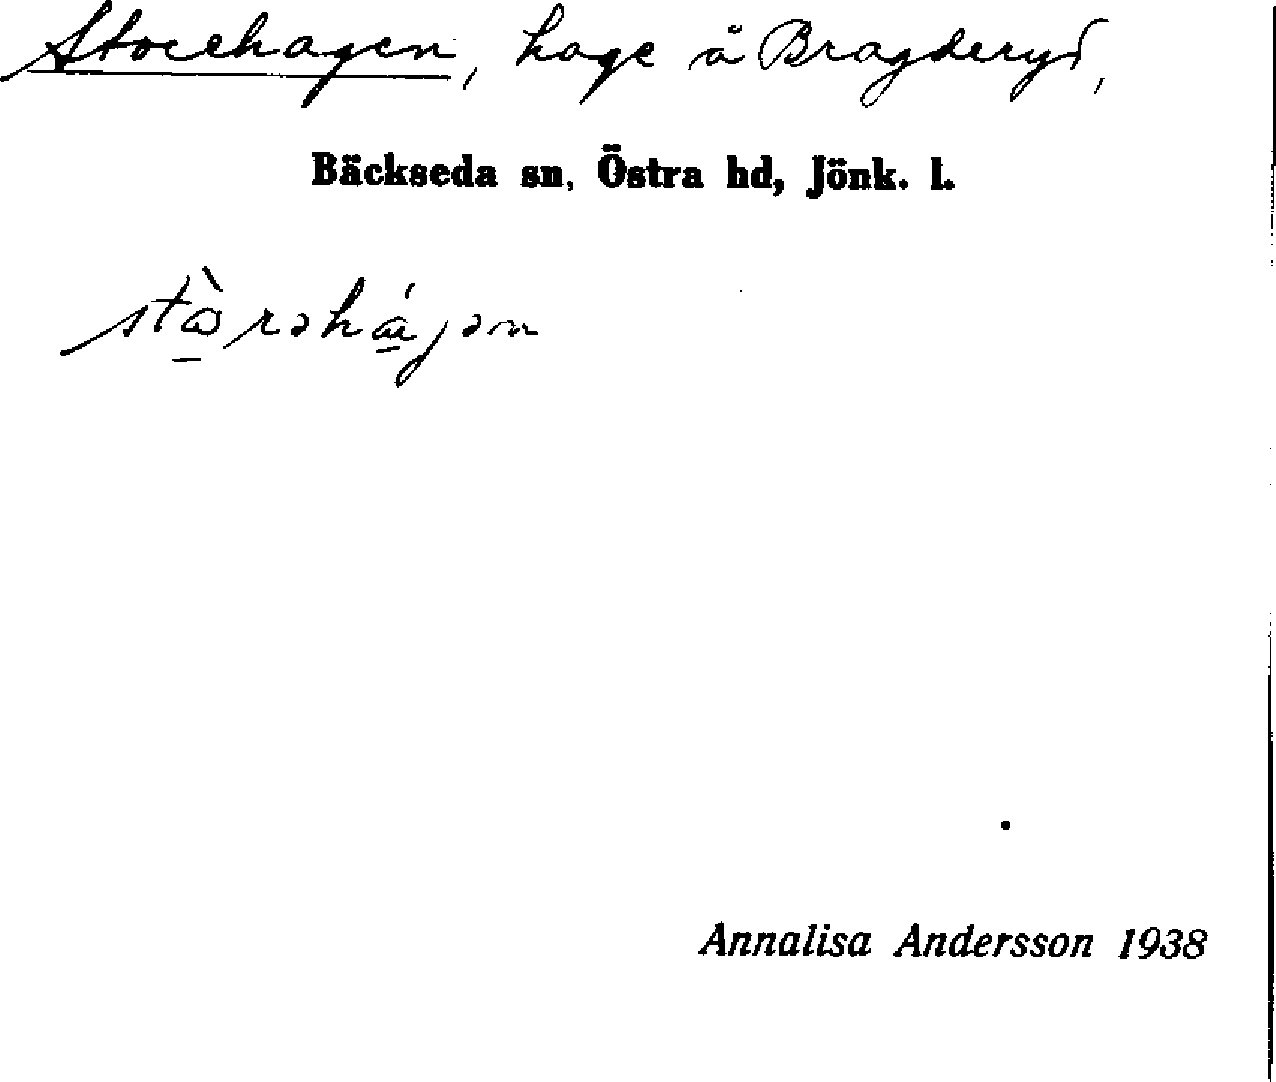 Storehagen, hage å Bragderyd,
Bäckseda sn, Östra hd, Jönk. l.
Annalisa Andersson 1938